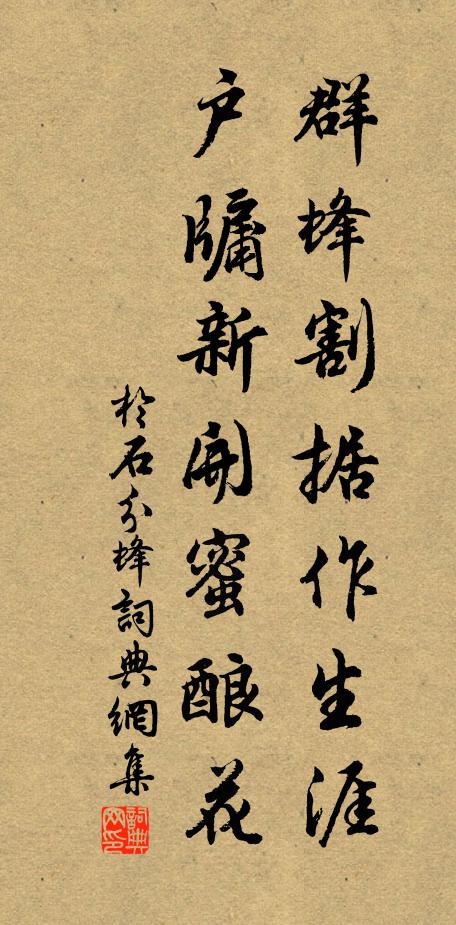 群蜂割据作生涯
户牖新开蜜酿花
於石分蜂詞典網集
詞典网印